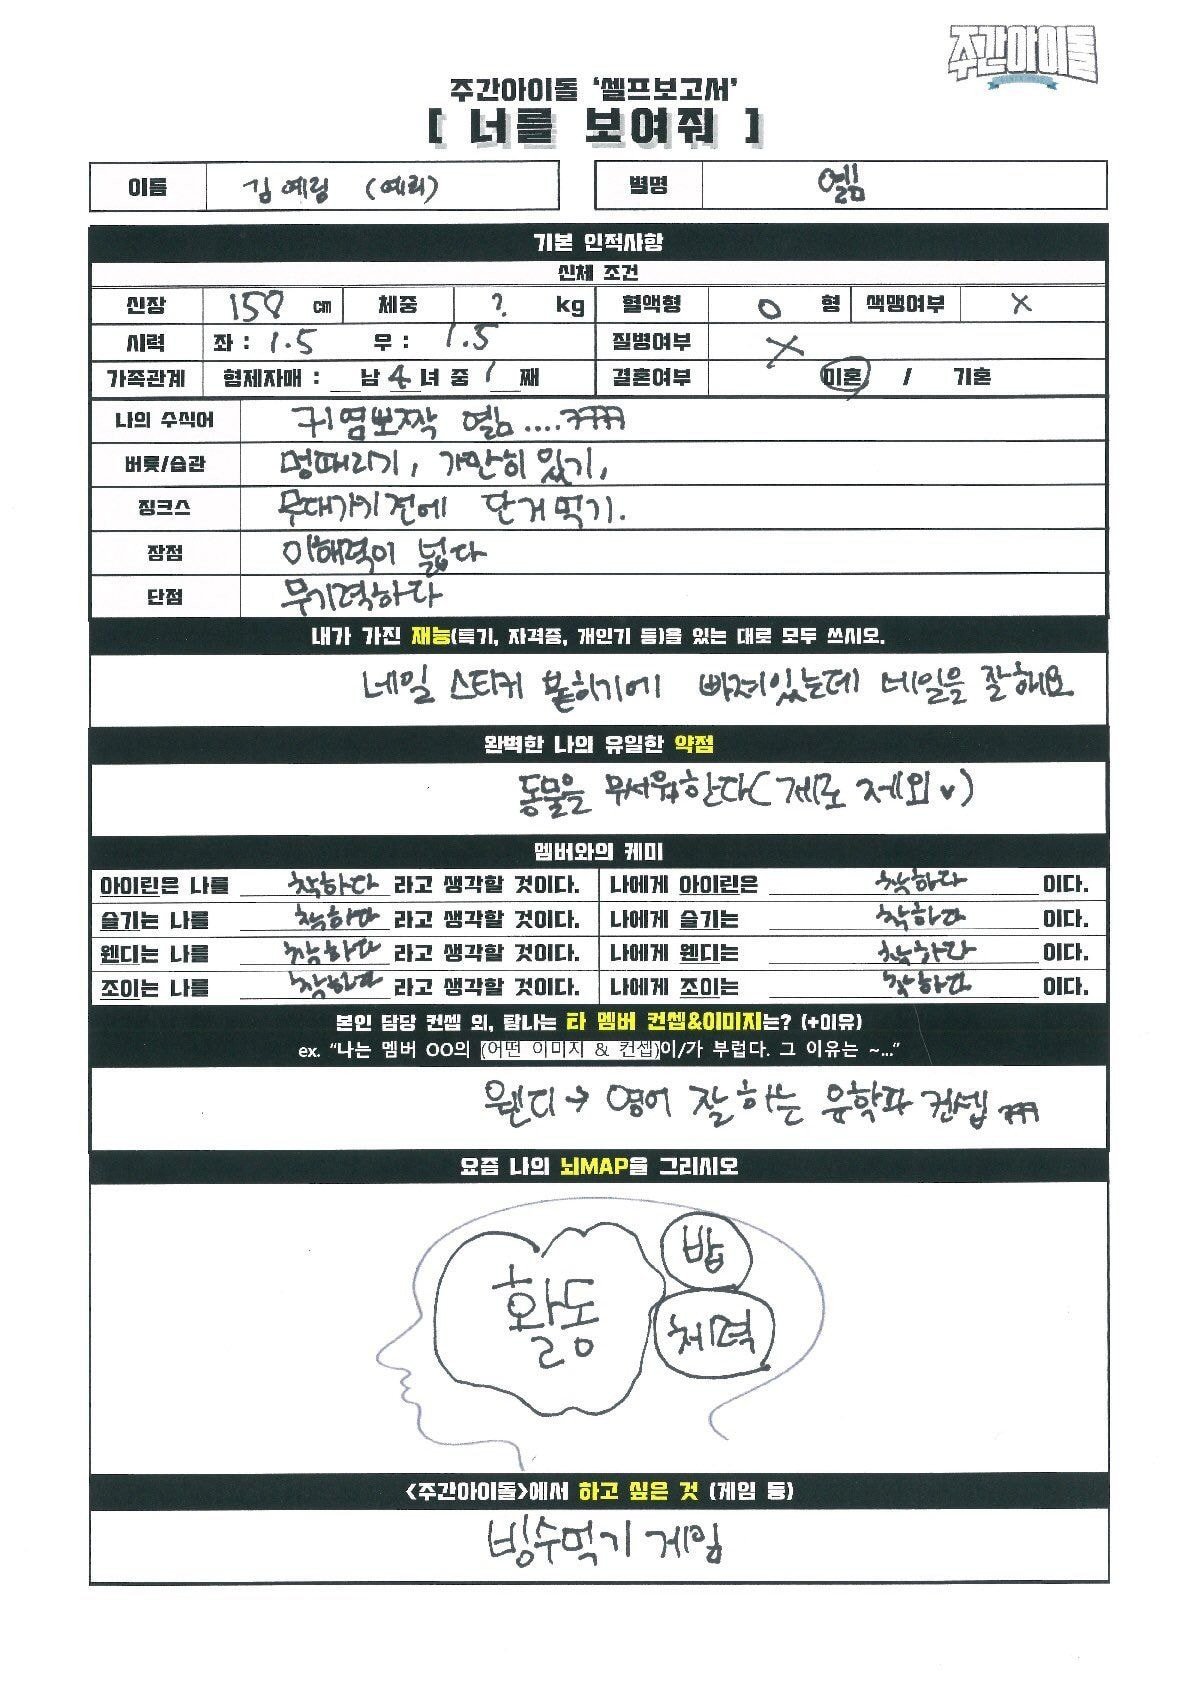 주간아이돌
주간아이돌 '셀프보고서'
[ 너를 보여줘 ]
이름 김예림 (예리) 별명 옐림
기본 인적사항
신체 조건
신장 158 cm 체중 ? kg 혈액형 O 형 색맹여부 X
시력 좌 : 1.5 우 : 1.5 질병여부 X
가족관계 형제자매 : __남 4녀 중 1째 결혼여부 미혼 / 기혼
나의 수식어 귀염뽀짝 옐림....ㅋㅋㅋㅋ
버릇/습관 멍때리기, 가만히 있기,
징크스 무대가기 전에 단거 먹기.
장점 이해력이 넓다
단점 무기력하다
내가 가진 재능(특기, 자격증, 개인기 등)을 있는 대로 모두 쓰시오.
네일 스티커 붙히기에 빠져있는데 네일을 잘해요
완벽한 나의 유일한 약점
동물을 무서워한다(제로 제외♥)
멤버와의 케미
아이린은 나를 착하다 라고 생각할 것이다. 나에게 아이린은 착하다 이다.
슬기는 나를 착하다 라고 생각할 것이다. 나에게 슬기는 착하다 이다.
웬디는 나를 착하다 라고 생각할 것이다. 나에게 웬디는 착하다 이다.
조이는 나를 착하다 라고 생각할 것이다. 나에게 조이는 착하다 이다.
본인 담당 컨셉 외, 탐나는 타 멤버 컨셉&이미지는? (+이유)
ex. "나는 멤버 OO의 (어떤 이미지 & 컨셉)이/가 부럽다. 그 이유는 ~..."
웬디 → 영어 잘하는 유학파 컨셉 ㅋㅋㅋ
요즘 나의 뇌MAP을 그리시오
밥
활동
체력
<주간아이돌>에서 하고 싶은 것 (게임 등)
빙수먹기 게임